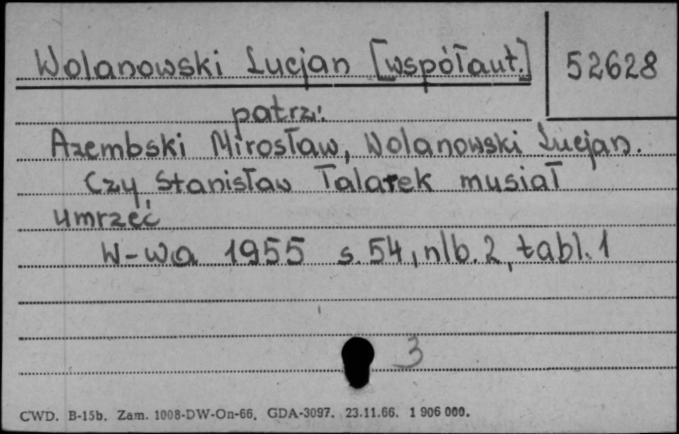 Wolanowski Lucjan [współaut.] 52628
patrz:
Azembski Mirosław, Wolanowski Lucjan.
Czy Stanisław Talarek musiał
umrzeć
W-wa 1955 s. 54, nlb. 2, tabl. 1
3
CWD. B-15b. Zam. 1008-DW-On-66. GDA-3097. 23.11.66. 1 906 000.